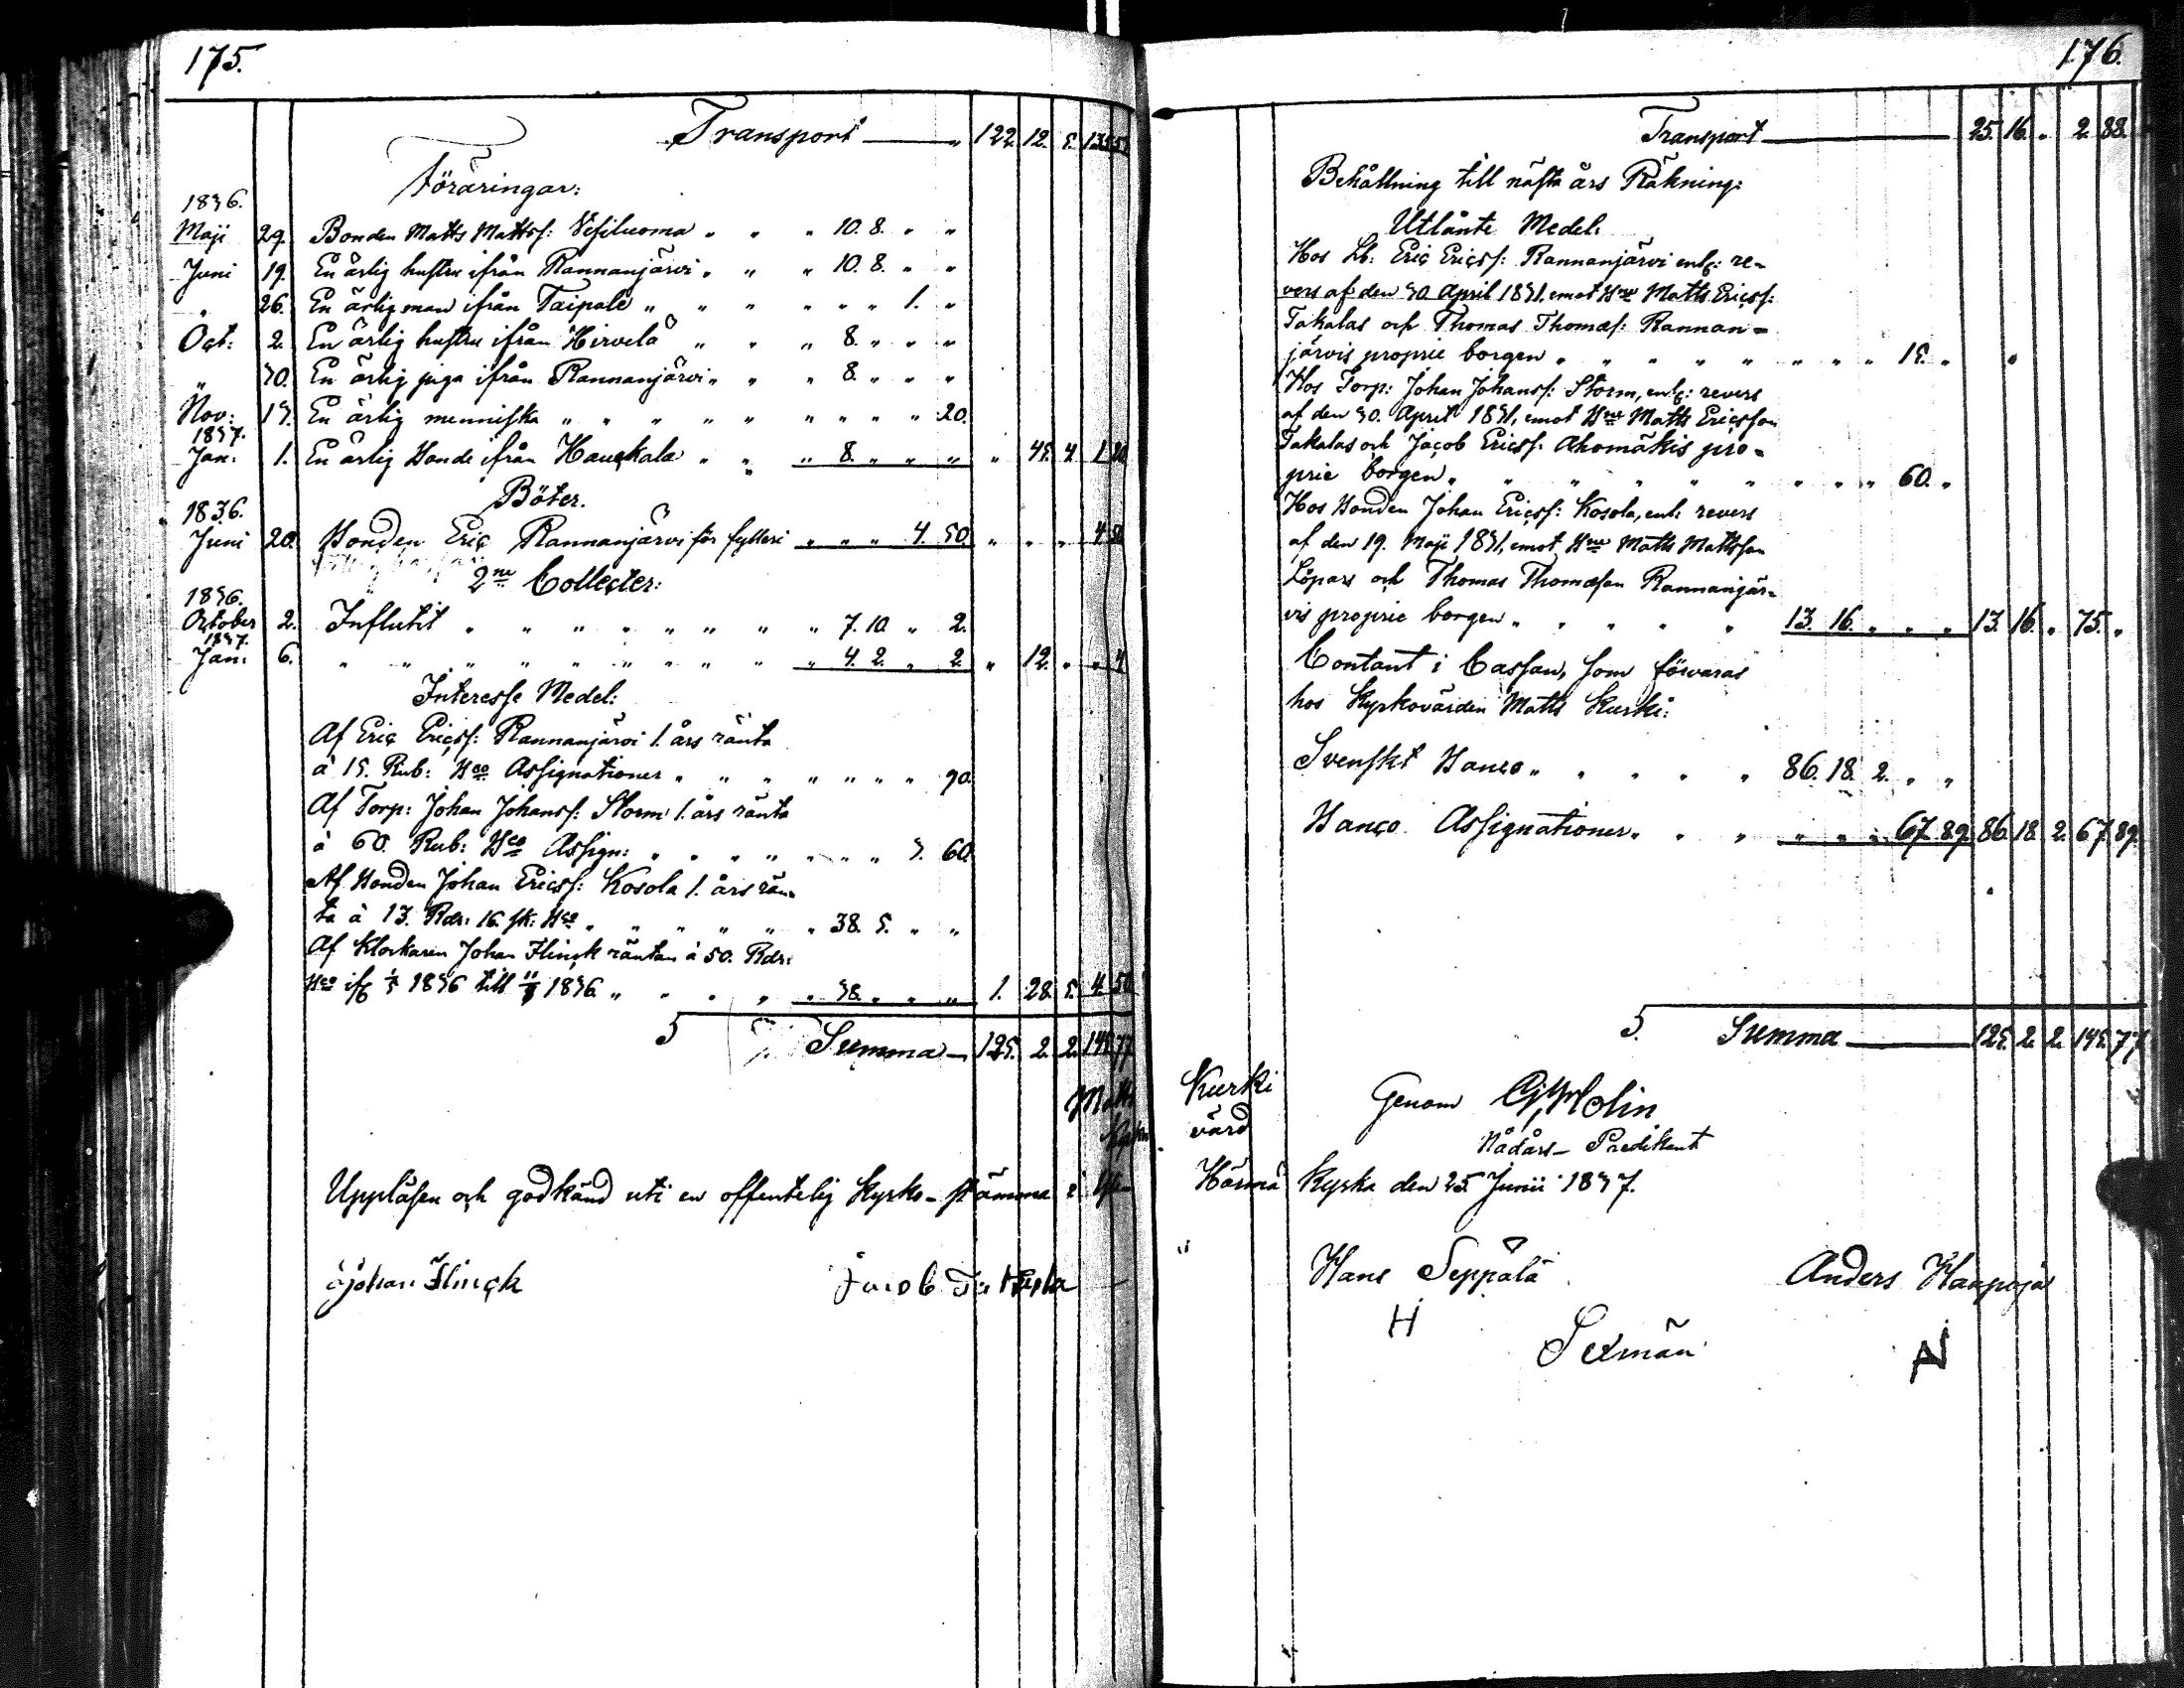 175.
Transport — „ 122. 12. 5. 135. 57.
Föräringar:
1836.
Maji 29. Bonden Matts Mattss: Vesiluoma „ „ „ 10. 8. „ „
Juni 19. En ärlig hustru ifrån Rannanjärvi „ „ „ 10. 8. „ „
„ 26. En ärlig man ifrån Taipale „ „ „ „ „ „ 1. „
Oct: 2. En ärlig hustru ifrån Hirvelä „ „ „ 8. „ „ „
„ 30. En ärlig piga ifrån Rannanjärvi „ „ „ 8. „ „ „
Nov: 13. En ärlig menniska „ „ „ „ „ „ „ „ „ 20.
1837.
Jan: 1. En ärlig Bonde ifrån Hauckala „ „ „ 8. „ „ „ „ 45. 4. 1. 20.
Böter.
1836.
Juni 20. Bonden Eric Rannanjärvi för fylleri „ „ „ 4. 50. „ „ „ 4. 50
2ne Collecter:
1836.
October 2. Influtit „ „ „ „ „ „ „ „ 7. 10. „ 2.
1837.
Jan: 6. „ „ „ „ „ „ „ „ „ 4. 2. „ 2. „ 12. „ „ 4
Interesse Medel:
Af Eric Ericss: Rannanjärvi 1. års ränta
à 15. Rub: Bco Assignationer „ „ „ „ „ „ „ 90.
Af Torp: Johan Johanss: Storm 1. års ränta
à 60. Rub: Bco Assign: „ „ „ „ „ „ „ 3. 60.
Af Bonden Johan Ericss: Kosola 1. års rän-
ta à 13. Rdr: 16. sk: Bco „ „ „ „ „ „ 38. 5. „ „
Af Klockaren Johan Flinck räntan à 50. Rdr:
1836 till 1836. „ „ „ „ „ 38. „ „ „ 1. 28. 5. 4. 50.
Summa — 125. 2. 2. 145. 77
Matts Kurki
Kyrko värd
Uppläsen och godkänd uti en offentelig Kyrko-stämma i Yli-Härmä Kyrka den 25. Junii 1837.
Johan Flinck
Jacob
176.
Transport — 25. 16. „ 2. 88.
Behållning till nästa års Räkning:
Utlånte Medel:
Hos Eric Ericss: Rannanjärvi enl: re-
vers af den 30 April 1831, emot Bne Matts Ericss:
Takalas och Thomas Thomass: Rannan-
järvis proprie borgen „ „ „ „ „ „ „ „ 15. „ „
Hos Torp: Johan Johanss: Storm, enl: revers
af den 30. April 1831, emot Bne Matts Ericsson
Takalas och Jacob Ericss: Ahomäkis pro-
prie borgen „ „ „ „ „ „ „ „ „ 60. „
Hos Bonden Johan Ericss: Kosola, enl: revers
af den 19. Maji 1831, emot Bne Matts Mattsson
Löpars och Thomas Thomasson Rannanjär-
vis proprie borgen „ „ „ „ „ 13. 16. „ „ „ 13. 16. „ 75. „
Contant i Cassan, som förvaras
hos Kyrkovärden Matts Kurki:
Svenskt Banco „ „ „ „ „ 86. 18. 2. „ „
Banco Assignationer „ „ „ „ „ „ 67. 89. 86. 18. 2. 67. 89.
Summa — 125. 2. 2. 145. 77
Genom Molin
Nådårs-Predikant
Hans Seppälä
Anders Haapoja
H
Sexmän